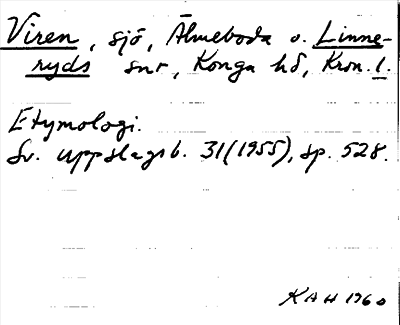 Viren, sjö, Älmeboda o. Linne-
ryds snr, Konga hd, Kron. l.
Etymologi.
Sv. uppslagsb. 31(1955), sp. 528.
KAH 1960